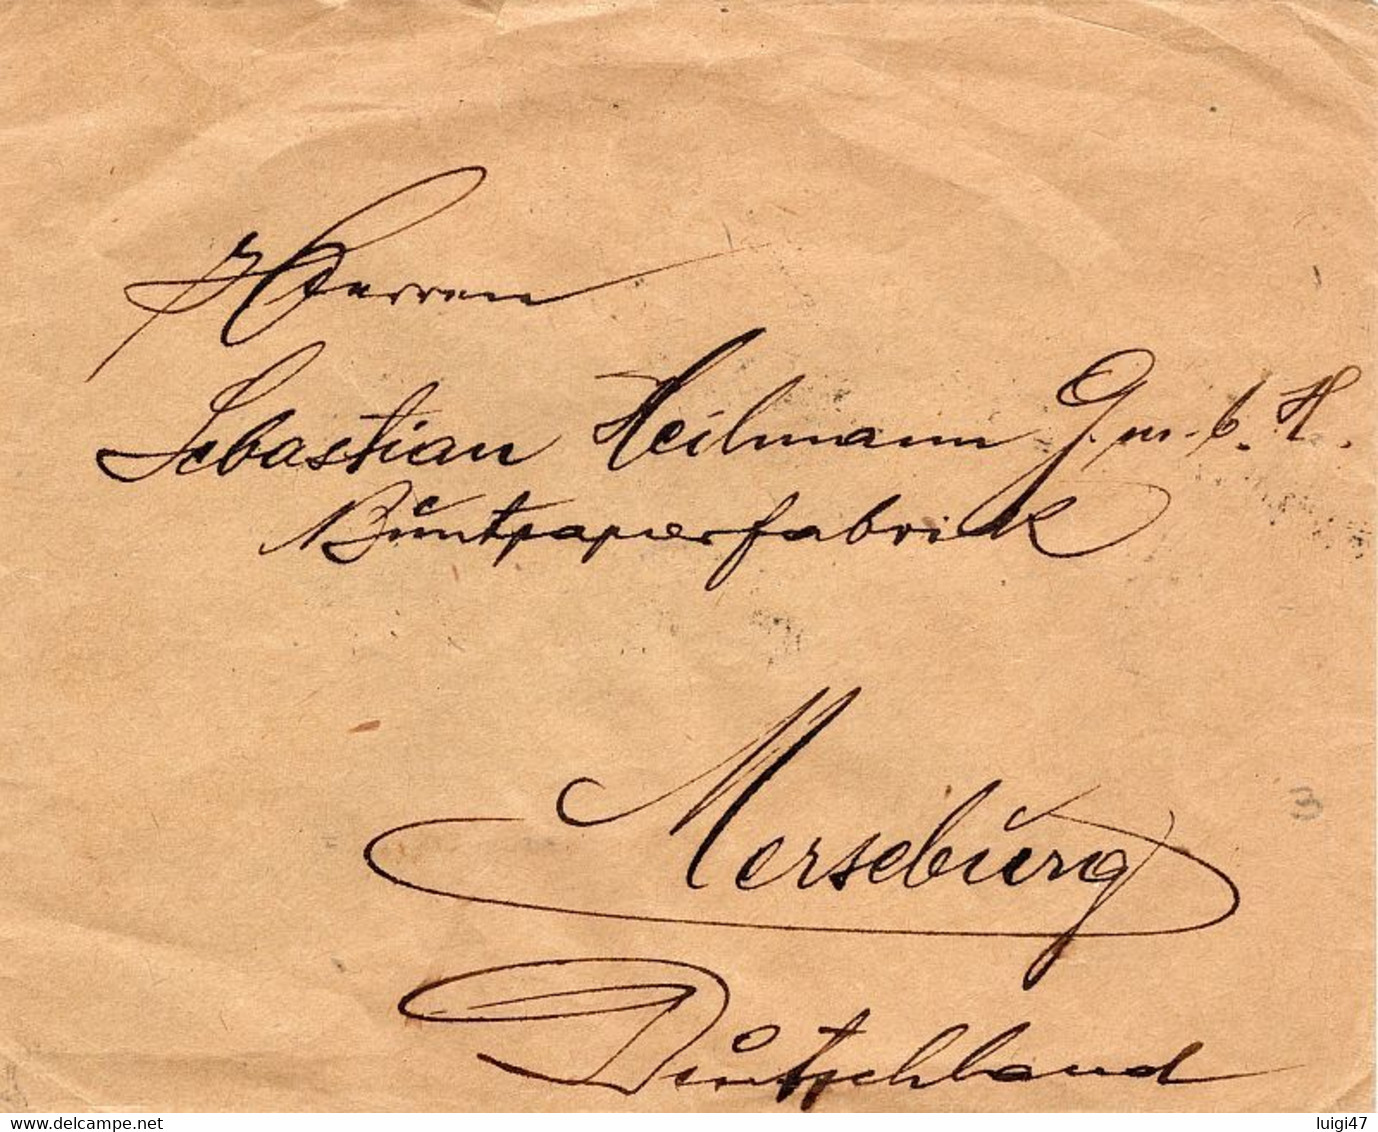 Herren
Sebastian Heilmann G.m.b.H.
Buntpapierfabrik
Merseburg
Deutschland
3
www.delcampe.net
luigi47